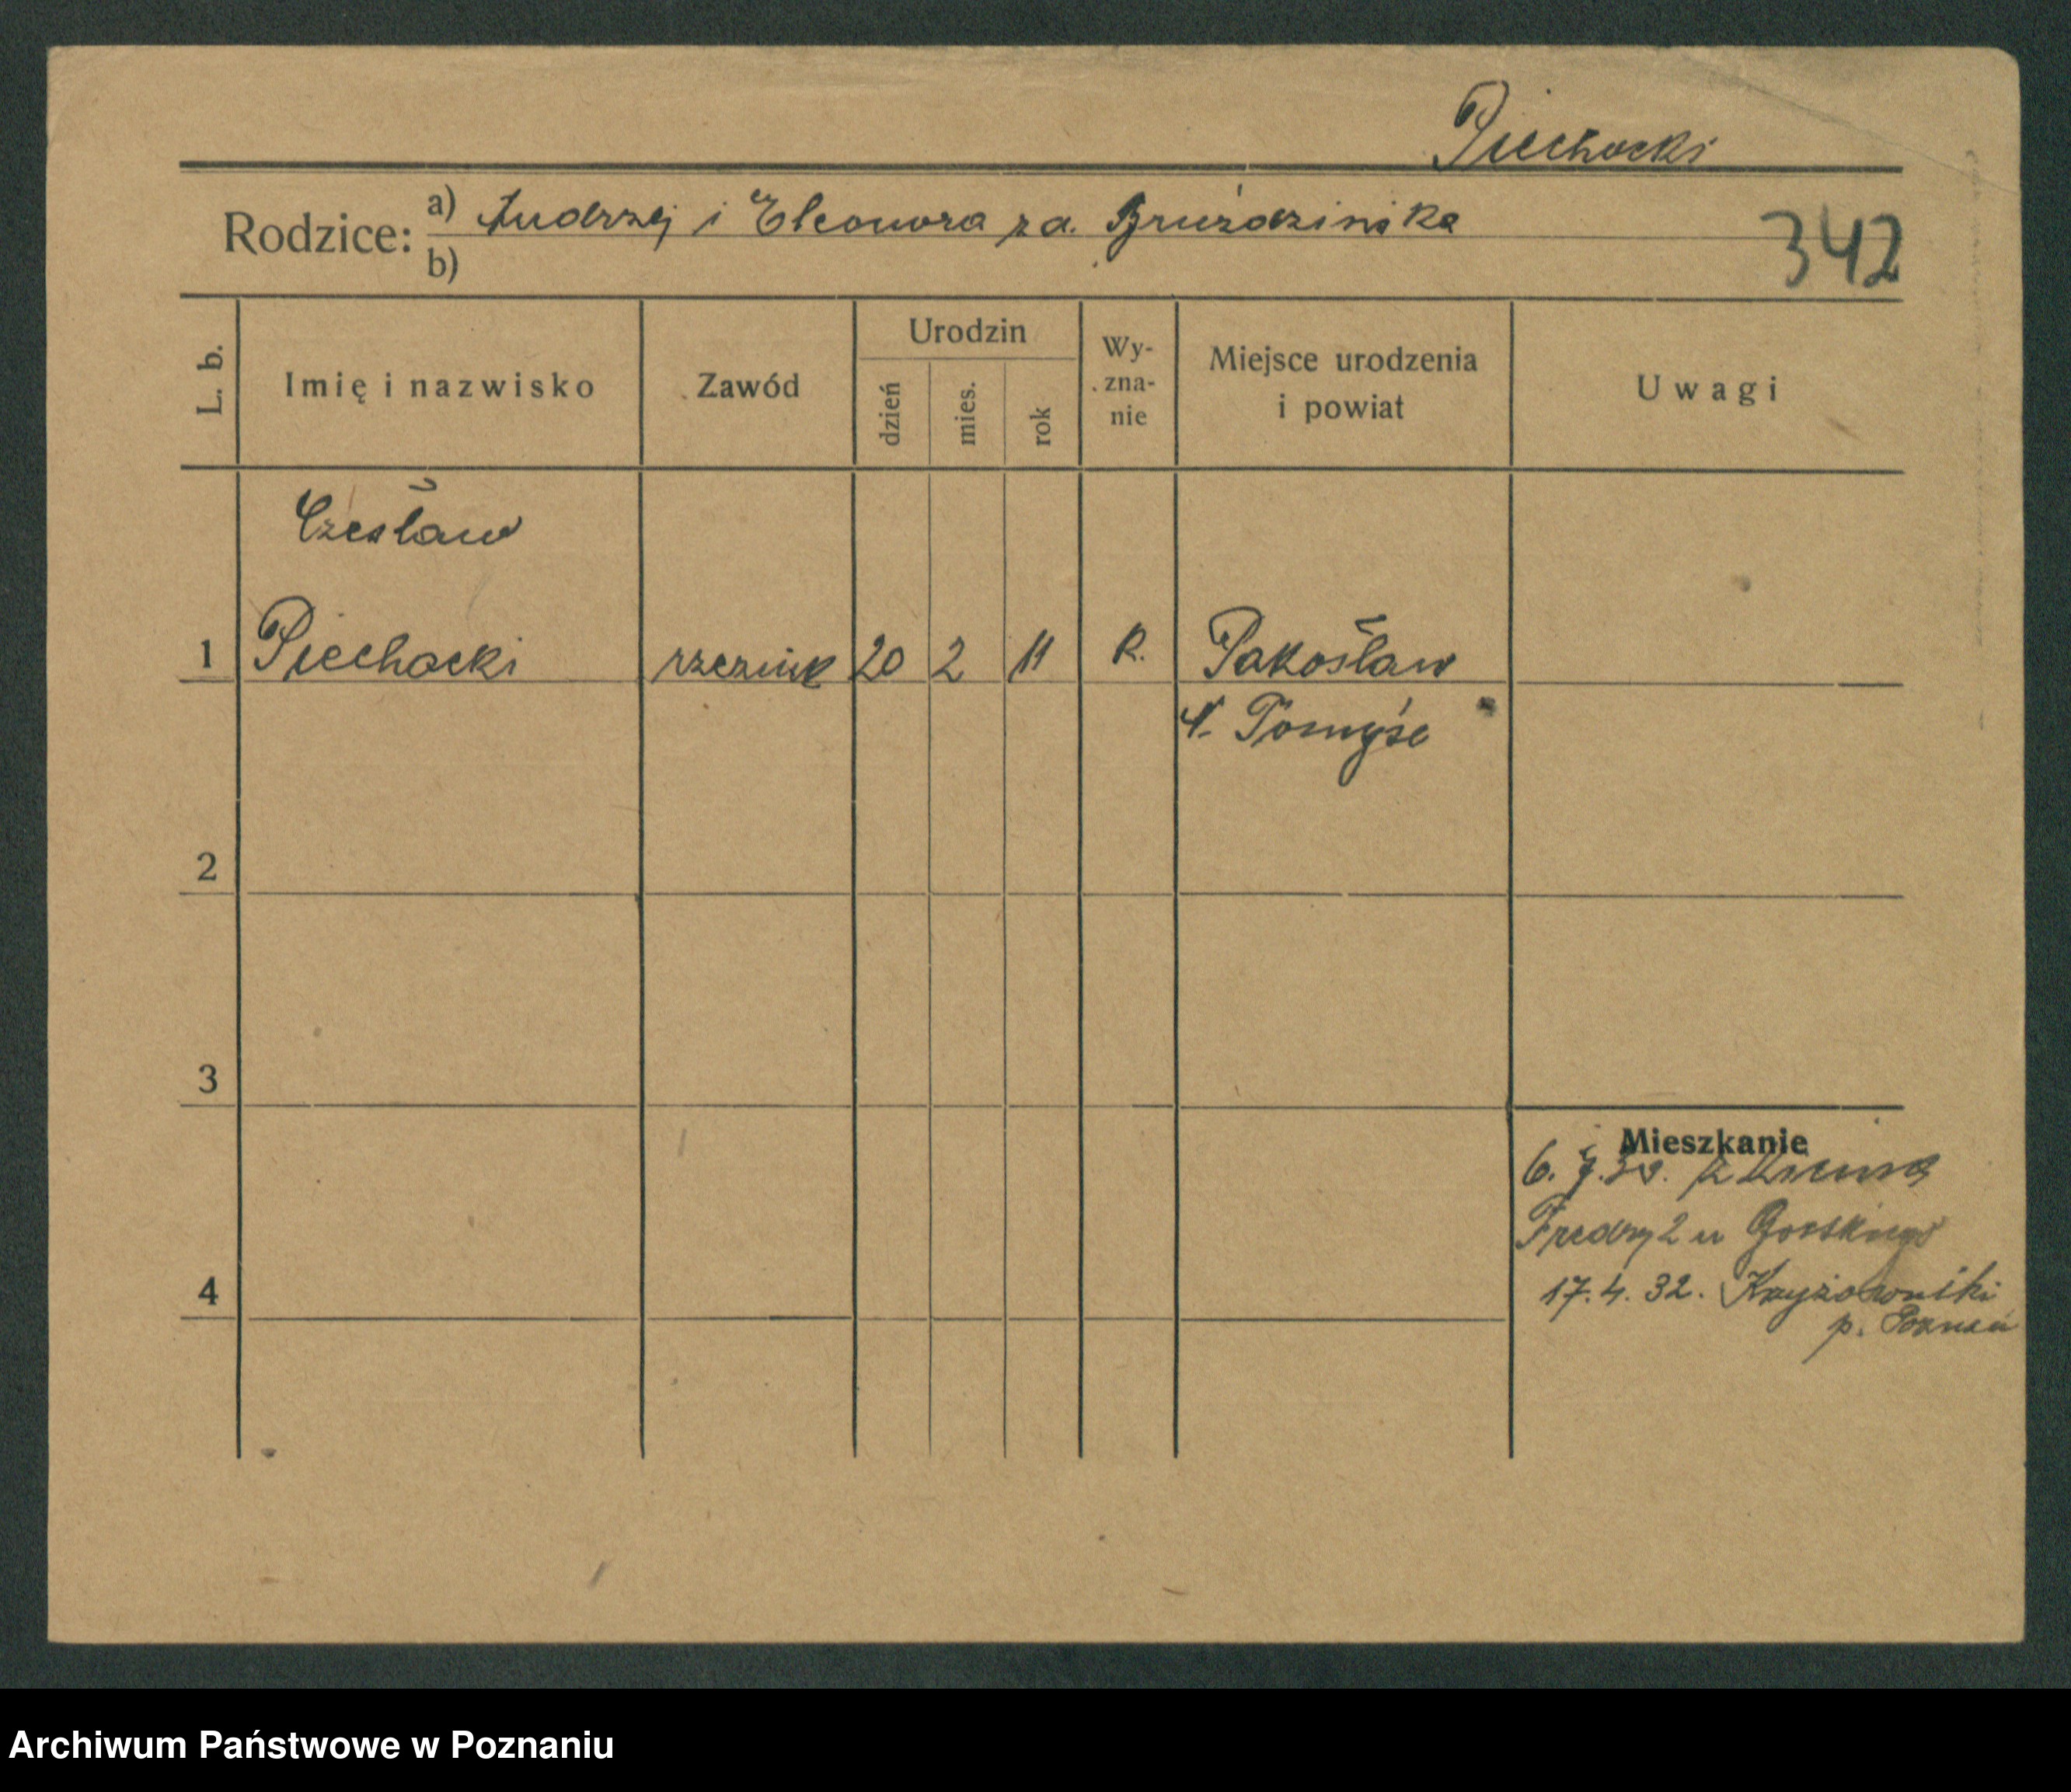 Piechocki
Rodzice: a) Andrzej i Eleonora za. Bruździńska
b)
342
L. b.
Imię i nazwisko
Zawód
Urodzin
dzień
mies.
rok
Wy-
zna-
nie
Miejsce urodzenia
i powiat
Uwagi
Czesław
1 Piechocki rzeźnik 20 2 11 R. Pakosław
N. Tomyśl
2
3
Mieszkanie
Fredry 2 u Gorskiego
4
17.4.32. Krzyżowniki
p. Poznań
Archiwum Państwowe w Poznaniu